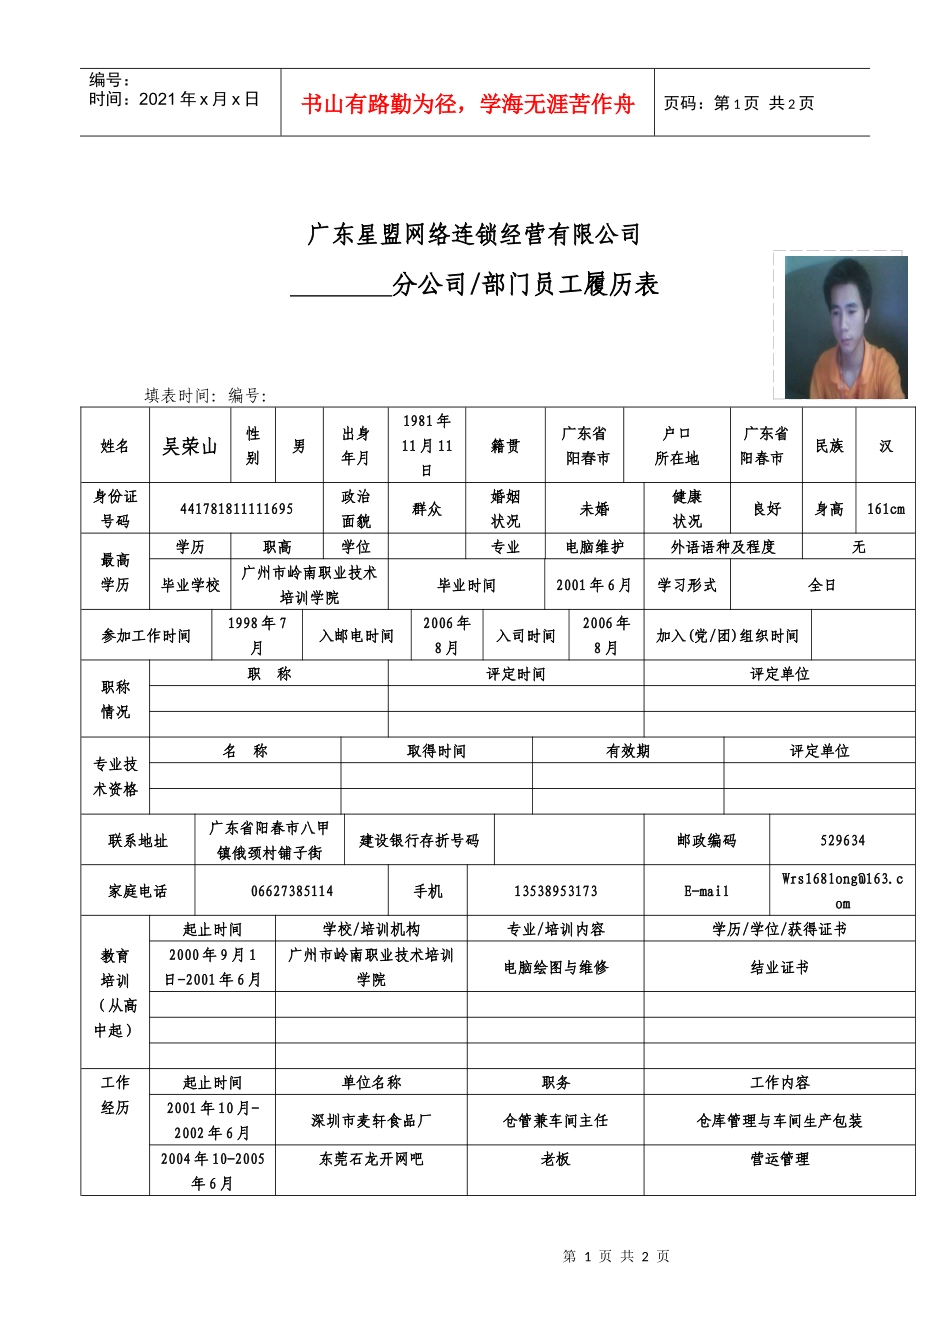 编号：
时间：2021年x月x日
书山有路勤为径，学海无涯苦作舟
页码：第1页 共2页
广东星盟网络连锁经营有限公司
________分公司/部门员工履历表
填表时间： 编号：
姓名 吴荣山 性别 男 出身年月 1981年11月11日 籍贯 广东省阳春市 户口所在地 广东省阳春市 民族 汉
身份证号码 441781811111695 政治面貌 群众 婚姻状况 未婚 健康状况 良好 身高 161cm
最高学历 学历 职高 学位 专业 电脑维护 外语语种及程度 无
毕业学校 广州市岭南职业技术培训学院 毕业时间 2001年6月 学习形式 全日
参加工作时间 1998年7月 入邮电时间 2006年8月 入司时间 2006年8月 加入(党/团)组织时间
职称情况 职 称 评定时间 评定单位
专业技术资格 名 称 取得时间 有效期 评定单位
联系地址 广东省阳春市八甲镇俄颈村铺子街 建设银行存折号码 邮政编码 529634
家庭电话 06627385114 手机 13538953173 E-mail Wrs168long@163.com
教育培训（从高中起） 起止时间 学校/培训机构 专业/培训内容 学历/学位/获得证书
2000年9月1日-2001年6月 广州市岭南职业技术培训学院 电脑绘图与维修 结业证书
工作经历 起止时间 单位名称 职务 工作内容
2001年10月-2002年6月 深圳市麦轩食品厂 仓管兼车间主任 仓库管理与车间生产包装
2004年10-2005年6月 东莞石龙开网吧 老板 营运管理
第 1 页 共 2 页